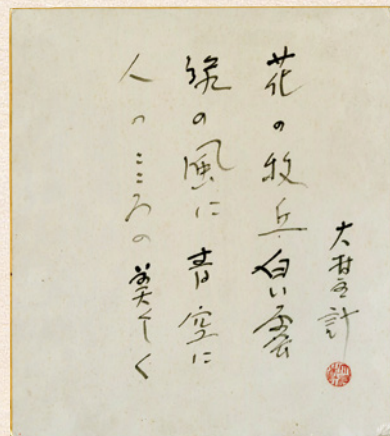 花の牧丘白い雲
緑の風に青空に
人のこころの美しく